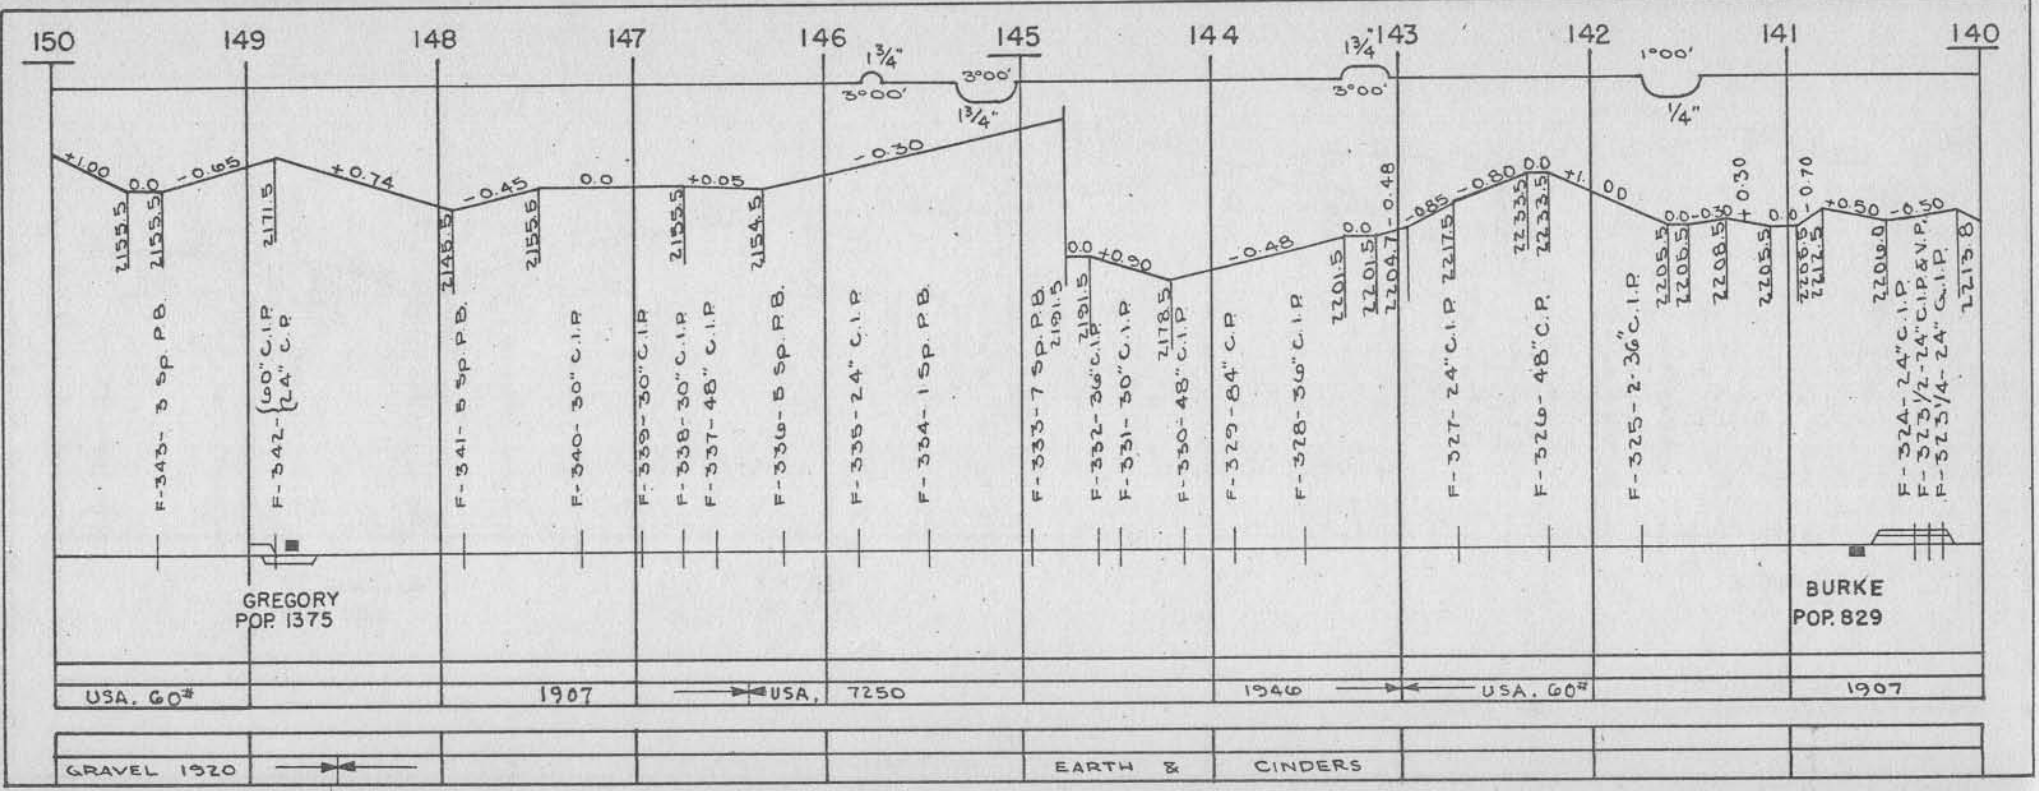 150 149 148 147 146 145 144 143 142 141 140
1¾"
3°00'
3°00'
1¾"
1¾"
3°00'
1°00'
¼"
+1.00 0.0 -0.65 +0.74 -0.45 0.0 +0.05 -0.30
0.0 +0.90 -0.48 0.0 -0.48 -0.85 -0.80 0.0 +1. 00 0.0 -0.30 +0.30 0.0 -0.70 +0.50 -0.50
2155.5
2155.5
2171.5
2145.5
2155.5
2155.5
2154.5
2191.5
2191.5
2178.5
2201.5
2201.5
2204.7
2217.5
2233.5
2233.5
2205.5
2205.5
2208.5
2205.5
2205.5
2212.5
2206.0
2213.8
F-343- 3 Sp. P.B.
F-342- {60" C.I.P.
24" C.P.
F-341- 5 Sp. P.B.
F-340- 30" C.I.P.
F-339- 30" C.I.P.
F-338- 30" C.I.P.
F-337- 48" C.I.P.
F-336- 5 Sp. P.B.
F-335- 24" C.I.P.
F-334- 1 Sp. P.B.
F-333- 7 Sp. P.B.
F-332- 36" C.I.P.
F-331- 30" C.I.P.
F-330- 48" C.I.P.
F-329- 84" C.P.
F-328- 36" C.I.P.
F-327- 24" C.I.P.
F-326- 48" C.P.
F-325- 2-36" C.I.P.
F-324- 24" C.I.P.
F-323½- 24" C.I.P. & V.P.
F-323¼- 24" C.I.P.
GREGORY
POP. 1375
BURKE
POP. 829
USA. 60# 1907 USA. 7250 1946 USA. 60# 1907
GRAVEL 1920 EARTH & CINDERS